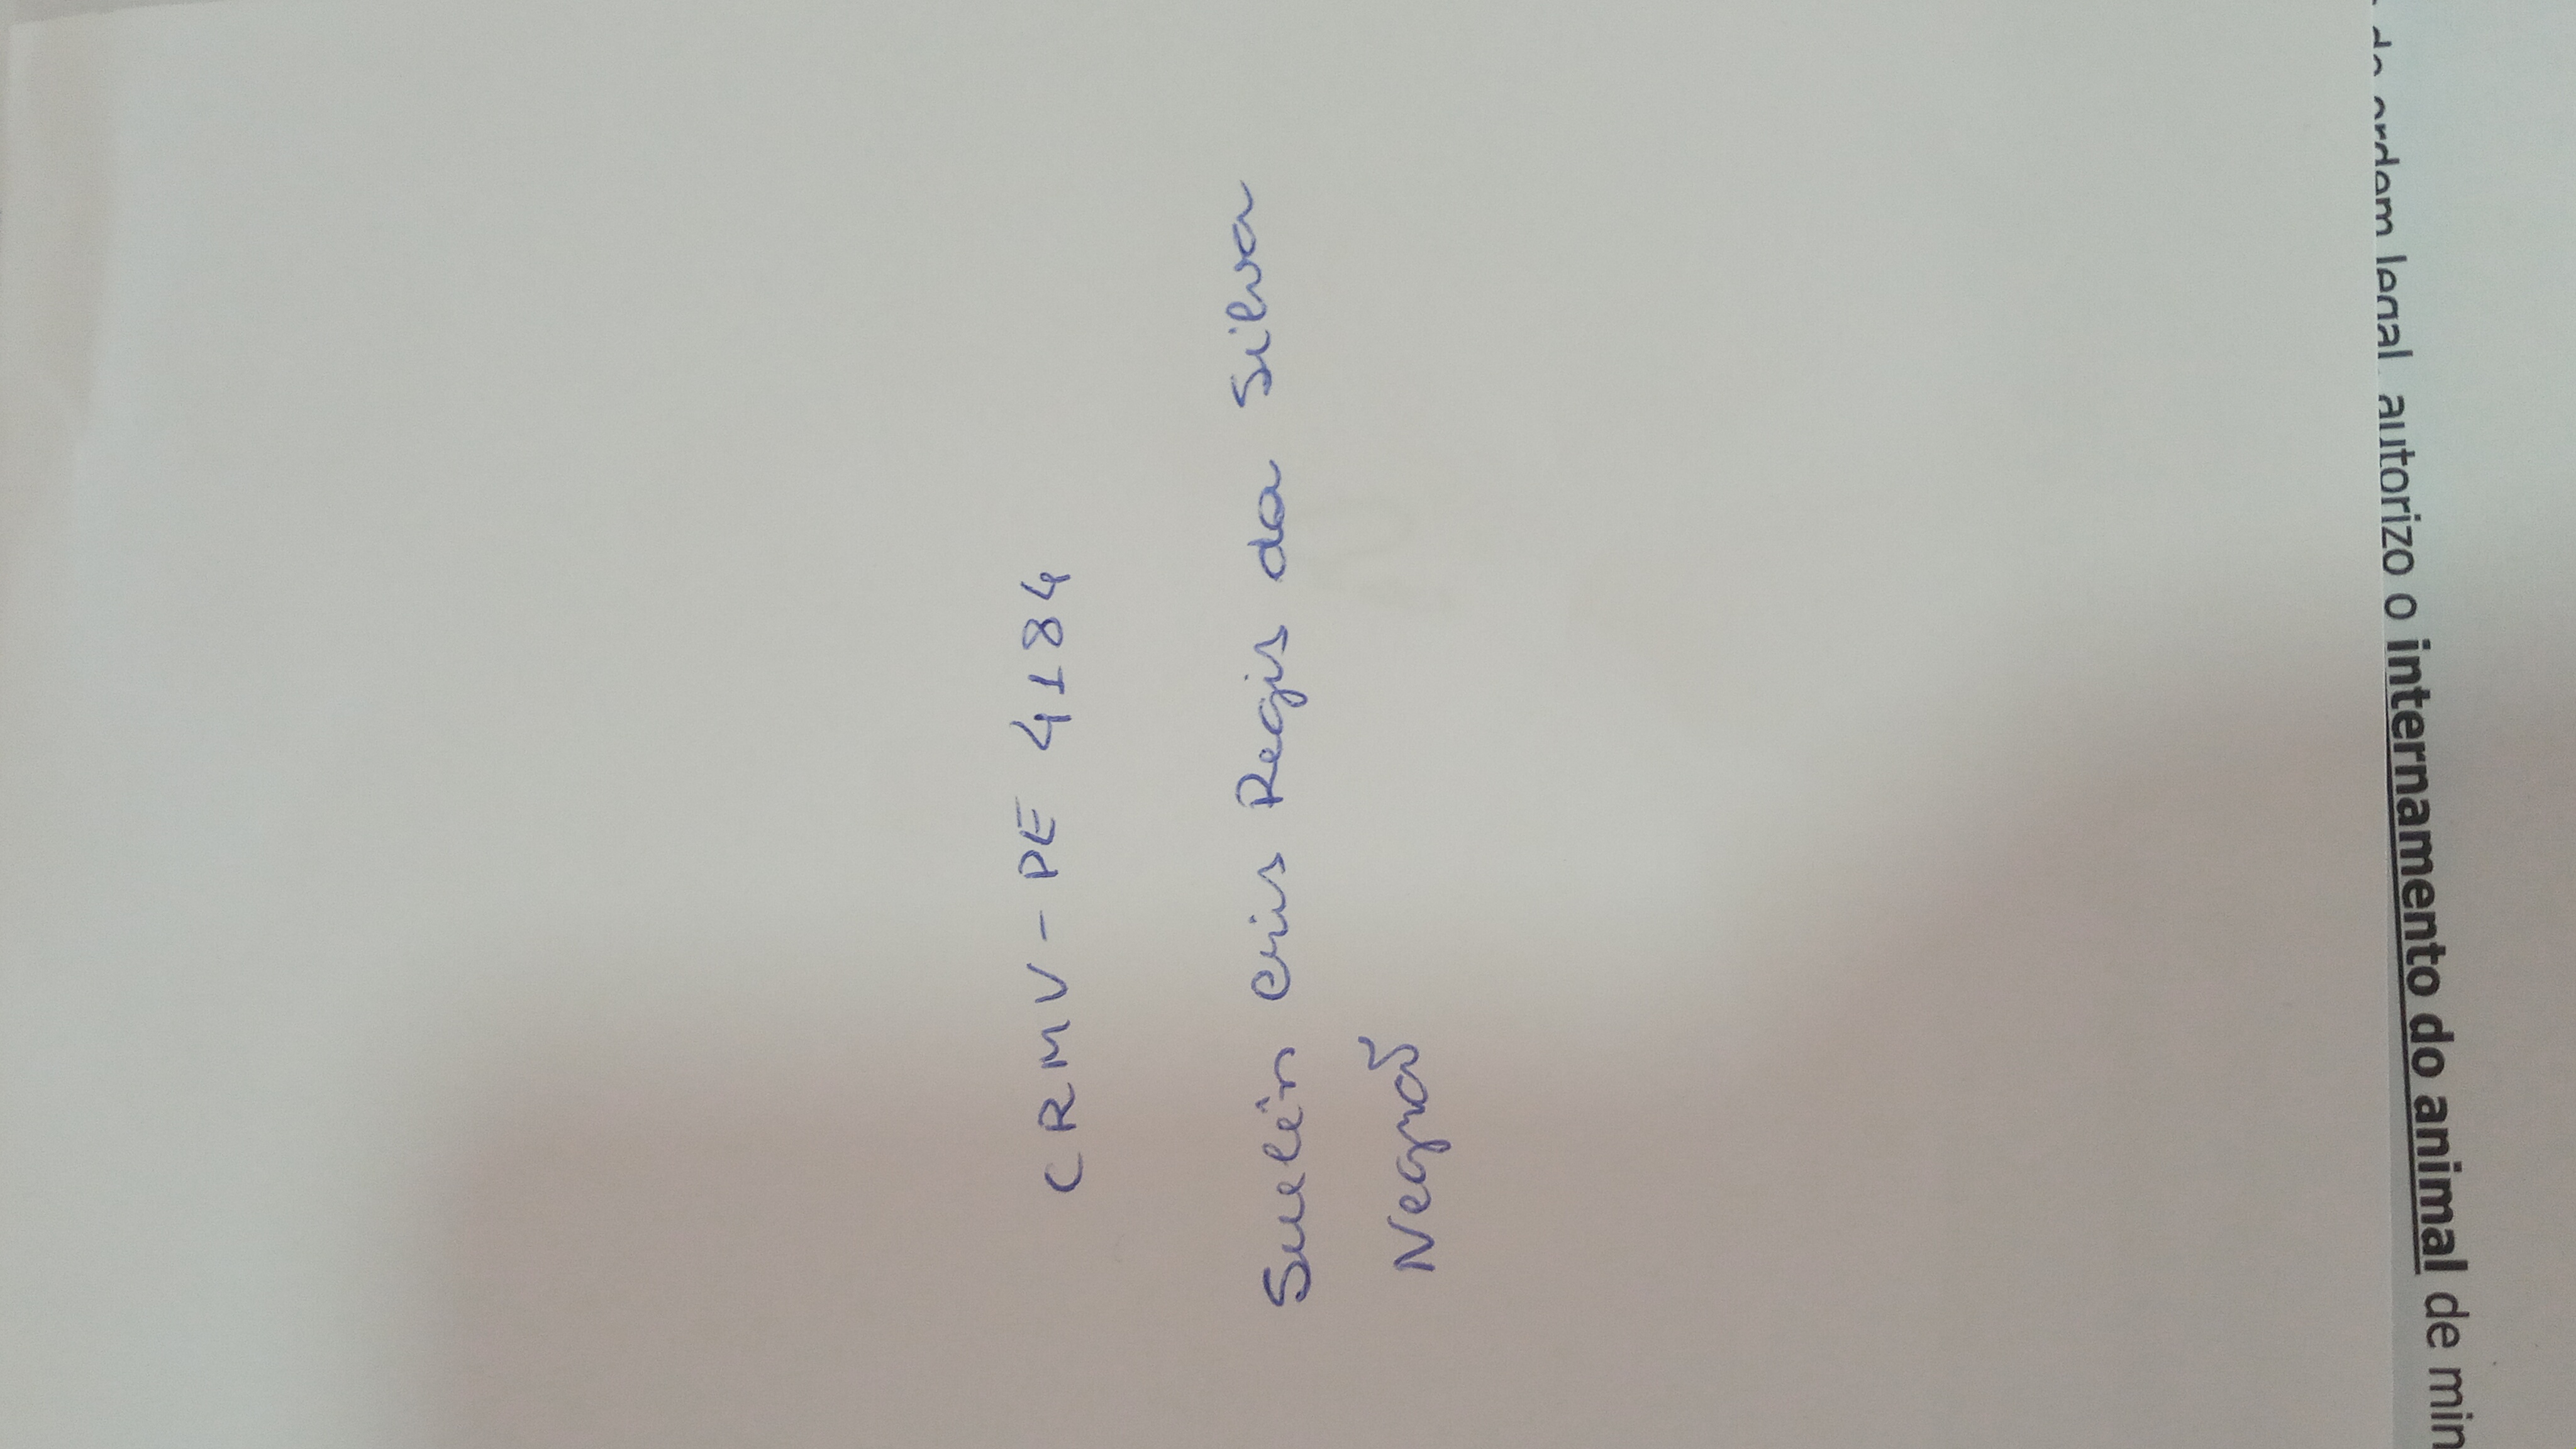 CRMV-PE 4184
Suelên Cris Regis da Silva
Negrão
ordem legal, autorizo o internamento do animal de min